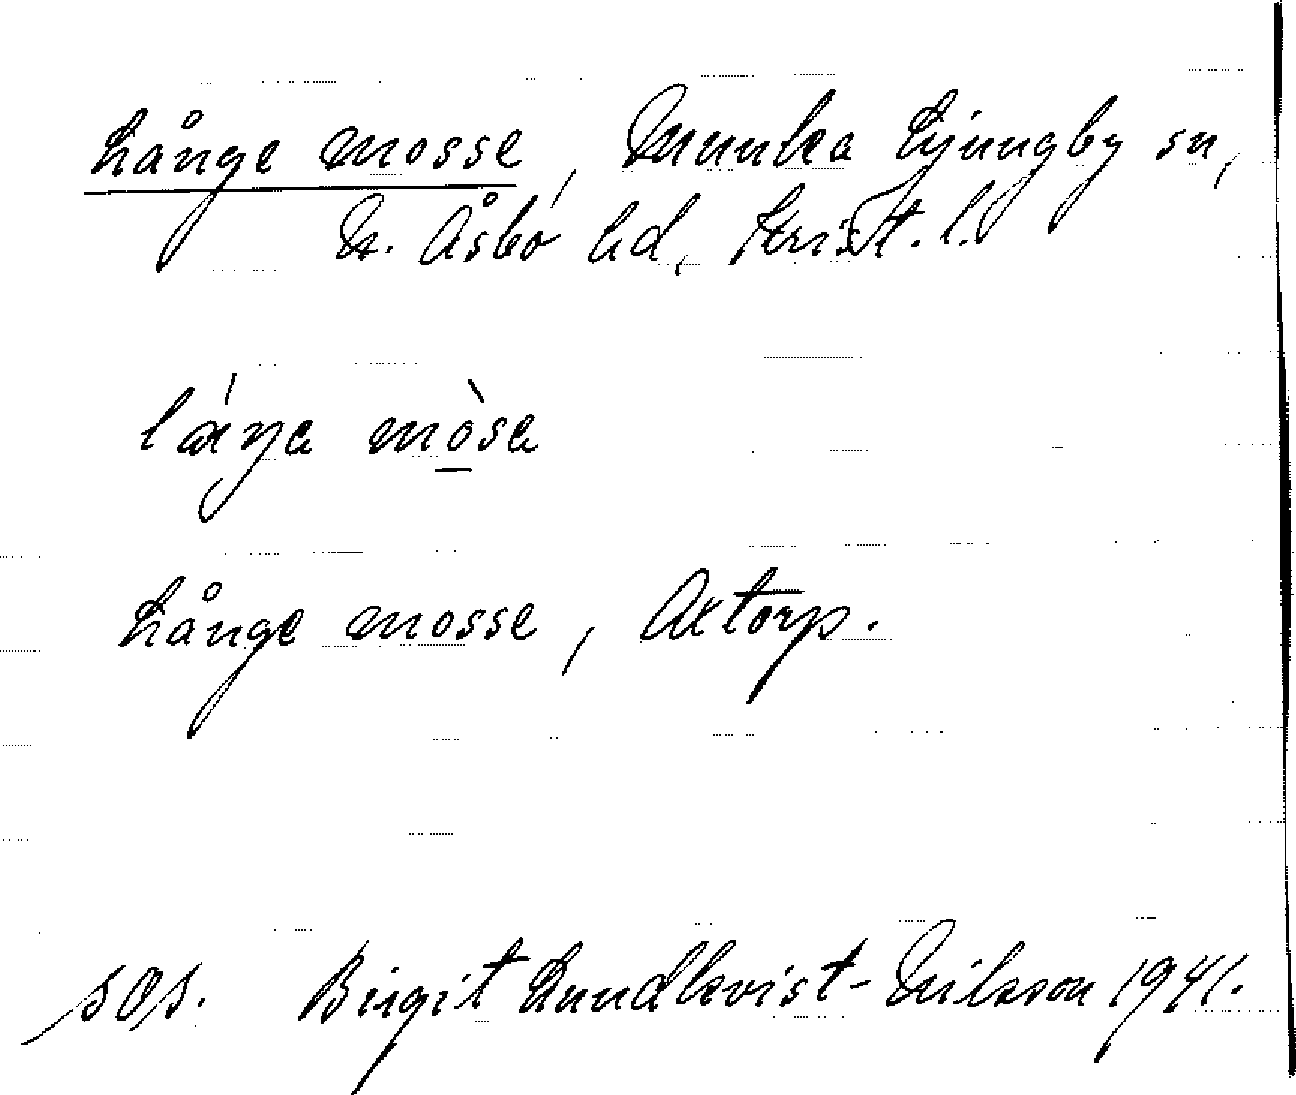 Långe mosse, Munka Ljungby sn,
N. Åsbo hd, Krist. l.
lánga mòsa
Långe mosse, Axtorp.
sOs. Birgit Lundkvist-Nilsson 1941.